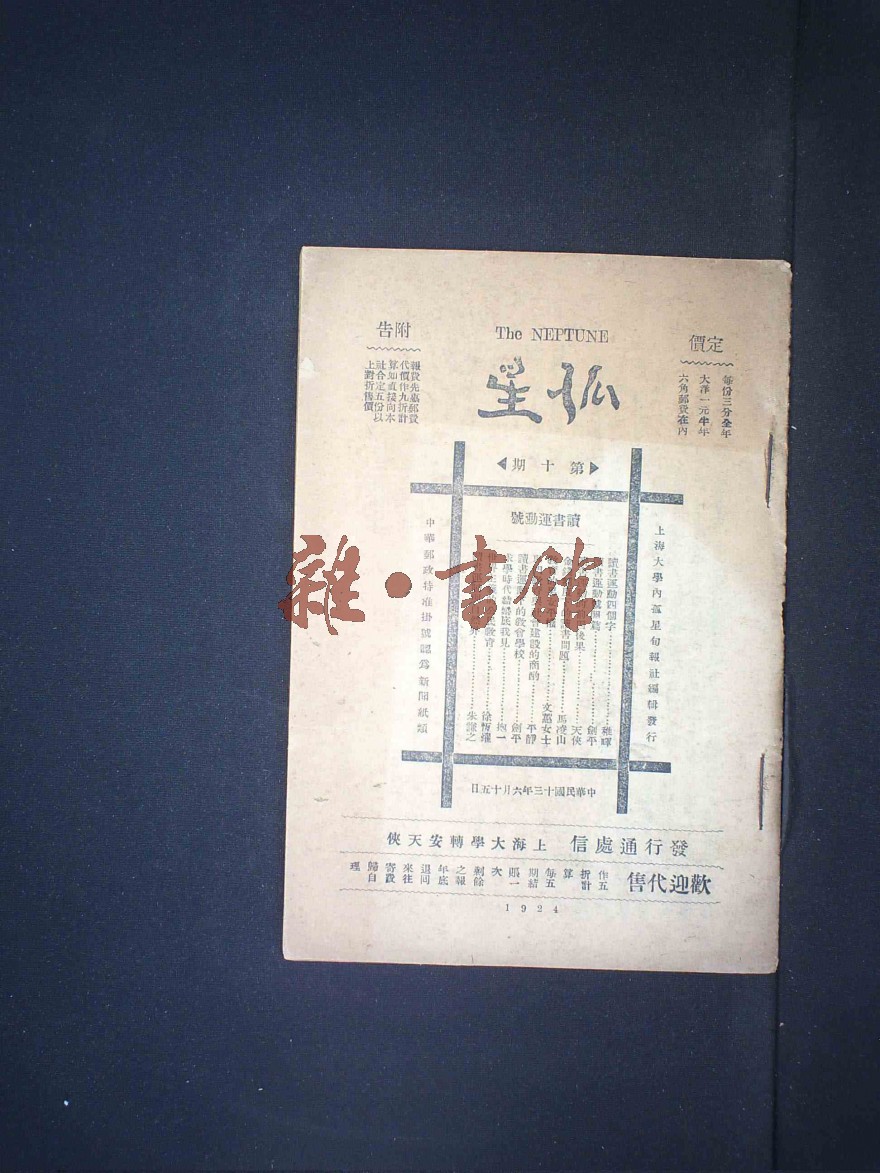 The NEPTUNE
孤星
定價
每份三分全年
大洋一元半年
六角郵費在內
附告
報費先惠郵費
代價作九折計
算如直接向本
社合定五份以
上對折售價
第十期
讀書運動號
讀書運動四個字……雅暉
劍平
後果……天俠
書問題……馬凌山
文蕙女士
建設的商酌……平靜
讀書運動中的教會學校……劍平
求學時代……我見……抱一
教育……徐恆燿
朱謙之
上海大學內孤星旬報社編輯發行
中華郵政特准掛號認爲新聞紙類
中華民國十三年六月十五日
發行通信處 上海大學轉安天俠
歡迎代售 作五折計算每五期結賬一次剩餘之報年底退回來往寄費歸自理
1924
雜·書館